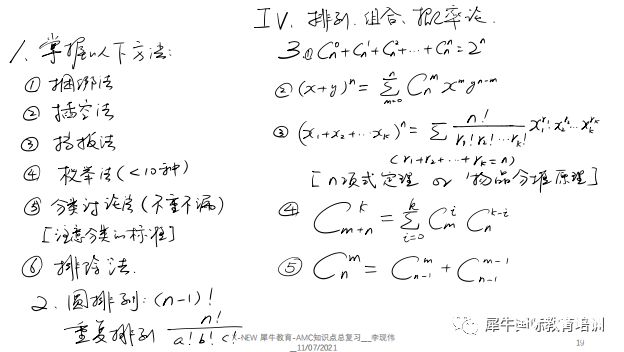 IV. 排列.组合.概率论.
1. 掌握以下方法:
① 捆绑法
② 插空法
③ 挡板法
④ 枚举法(<10种)
⑤ 分类讨论法(不重不漏)
[注意分类的标准]
⑥ 排除法.
2. 圆排列: (n-1)!
重复排列 n!/(a!b!c!)
3.① C_n^0+C_n^1+C_n^2+⋯+C_n^n=2^n
② (x+y)^n = Σ_{m=0}^{n} C_n^m x^m y^{n-m}
③ (x_1+x_2+⋯x_k)^n = Σ n!/(r_1!r_2!⋯r_k!) x_1^{r_1} x_2^{r_2}⋯x_k^{r_k}
(r_1+r_2+⋯+r_k=n)
[n项式定理 or 物品分堆原理]
④ C_{m+n}^k = Σ_{i=0}^{k} C_m^i C_n^{k-i}
⑤ C_n^m = C_{n-1}^m + C_{n-1}^{m-1}
-NEW 犀牛教育-AMC知识点总复习__李现伟
_11/07/2021
犀牛国际教育培训
19